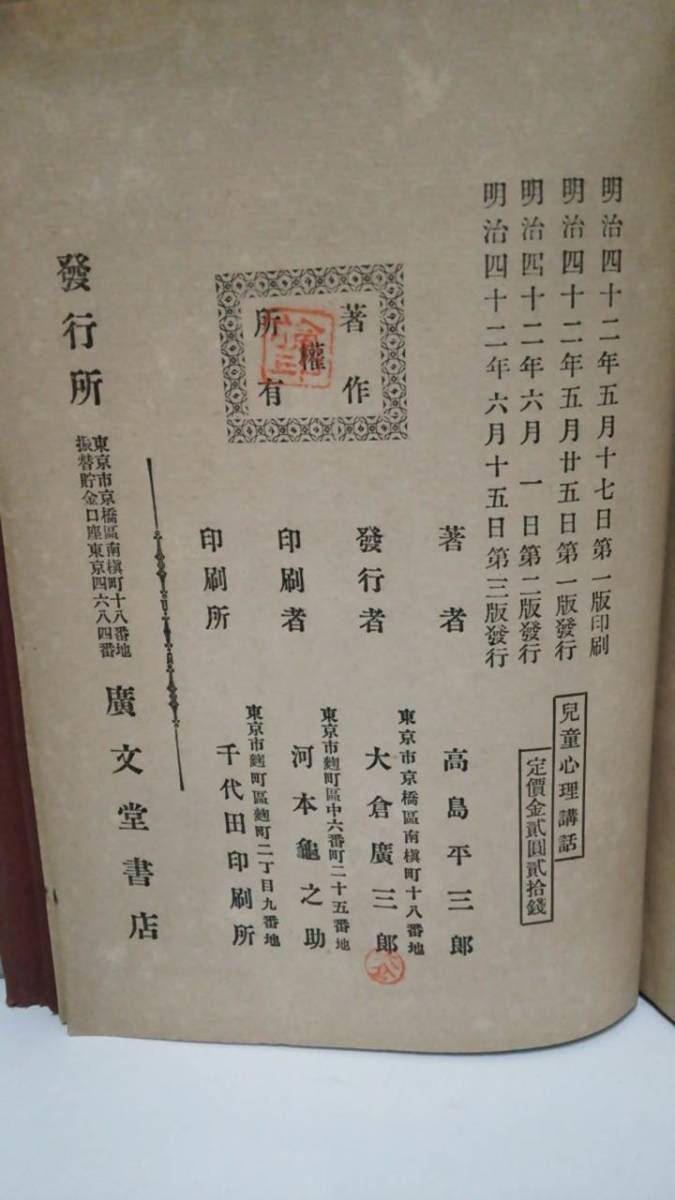 明治四十二年五月十七日第一版印刷
明治四十二年五月廿五日第一版發行
明治四十二年六月一日第二版發行
明治四十二年六月十五日第三版發行
兒童心理講話
定價金貳圓貳拾錢
著作
權
所有
著者
高島平三郎
發行者
東京市京橋區南槇町十八番地
大倉廣三郎
印刷者
東京市麴町區中六番町二十五番地
河本龜之助
印刷所
東京市麴町區麴町二丁目九番地
千代田印刷所
發行所
東京市京橋區南槇町十八番地
振替貯金口座東京四六八四番
廣文堂書店